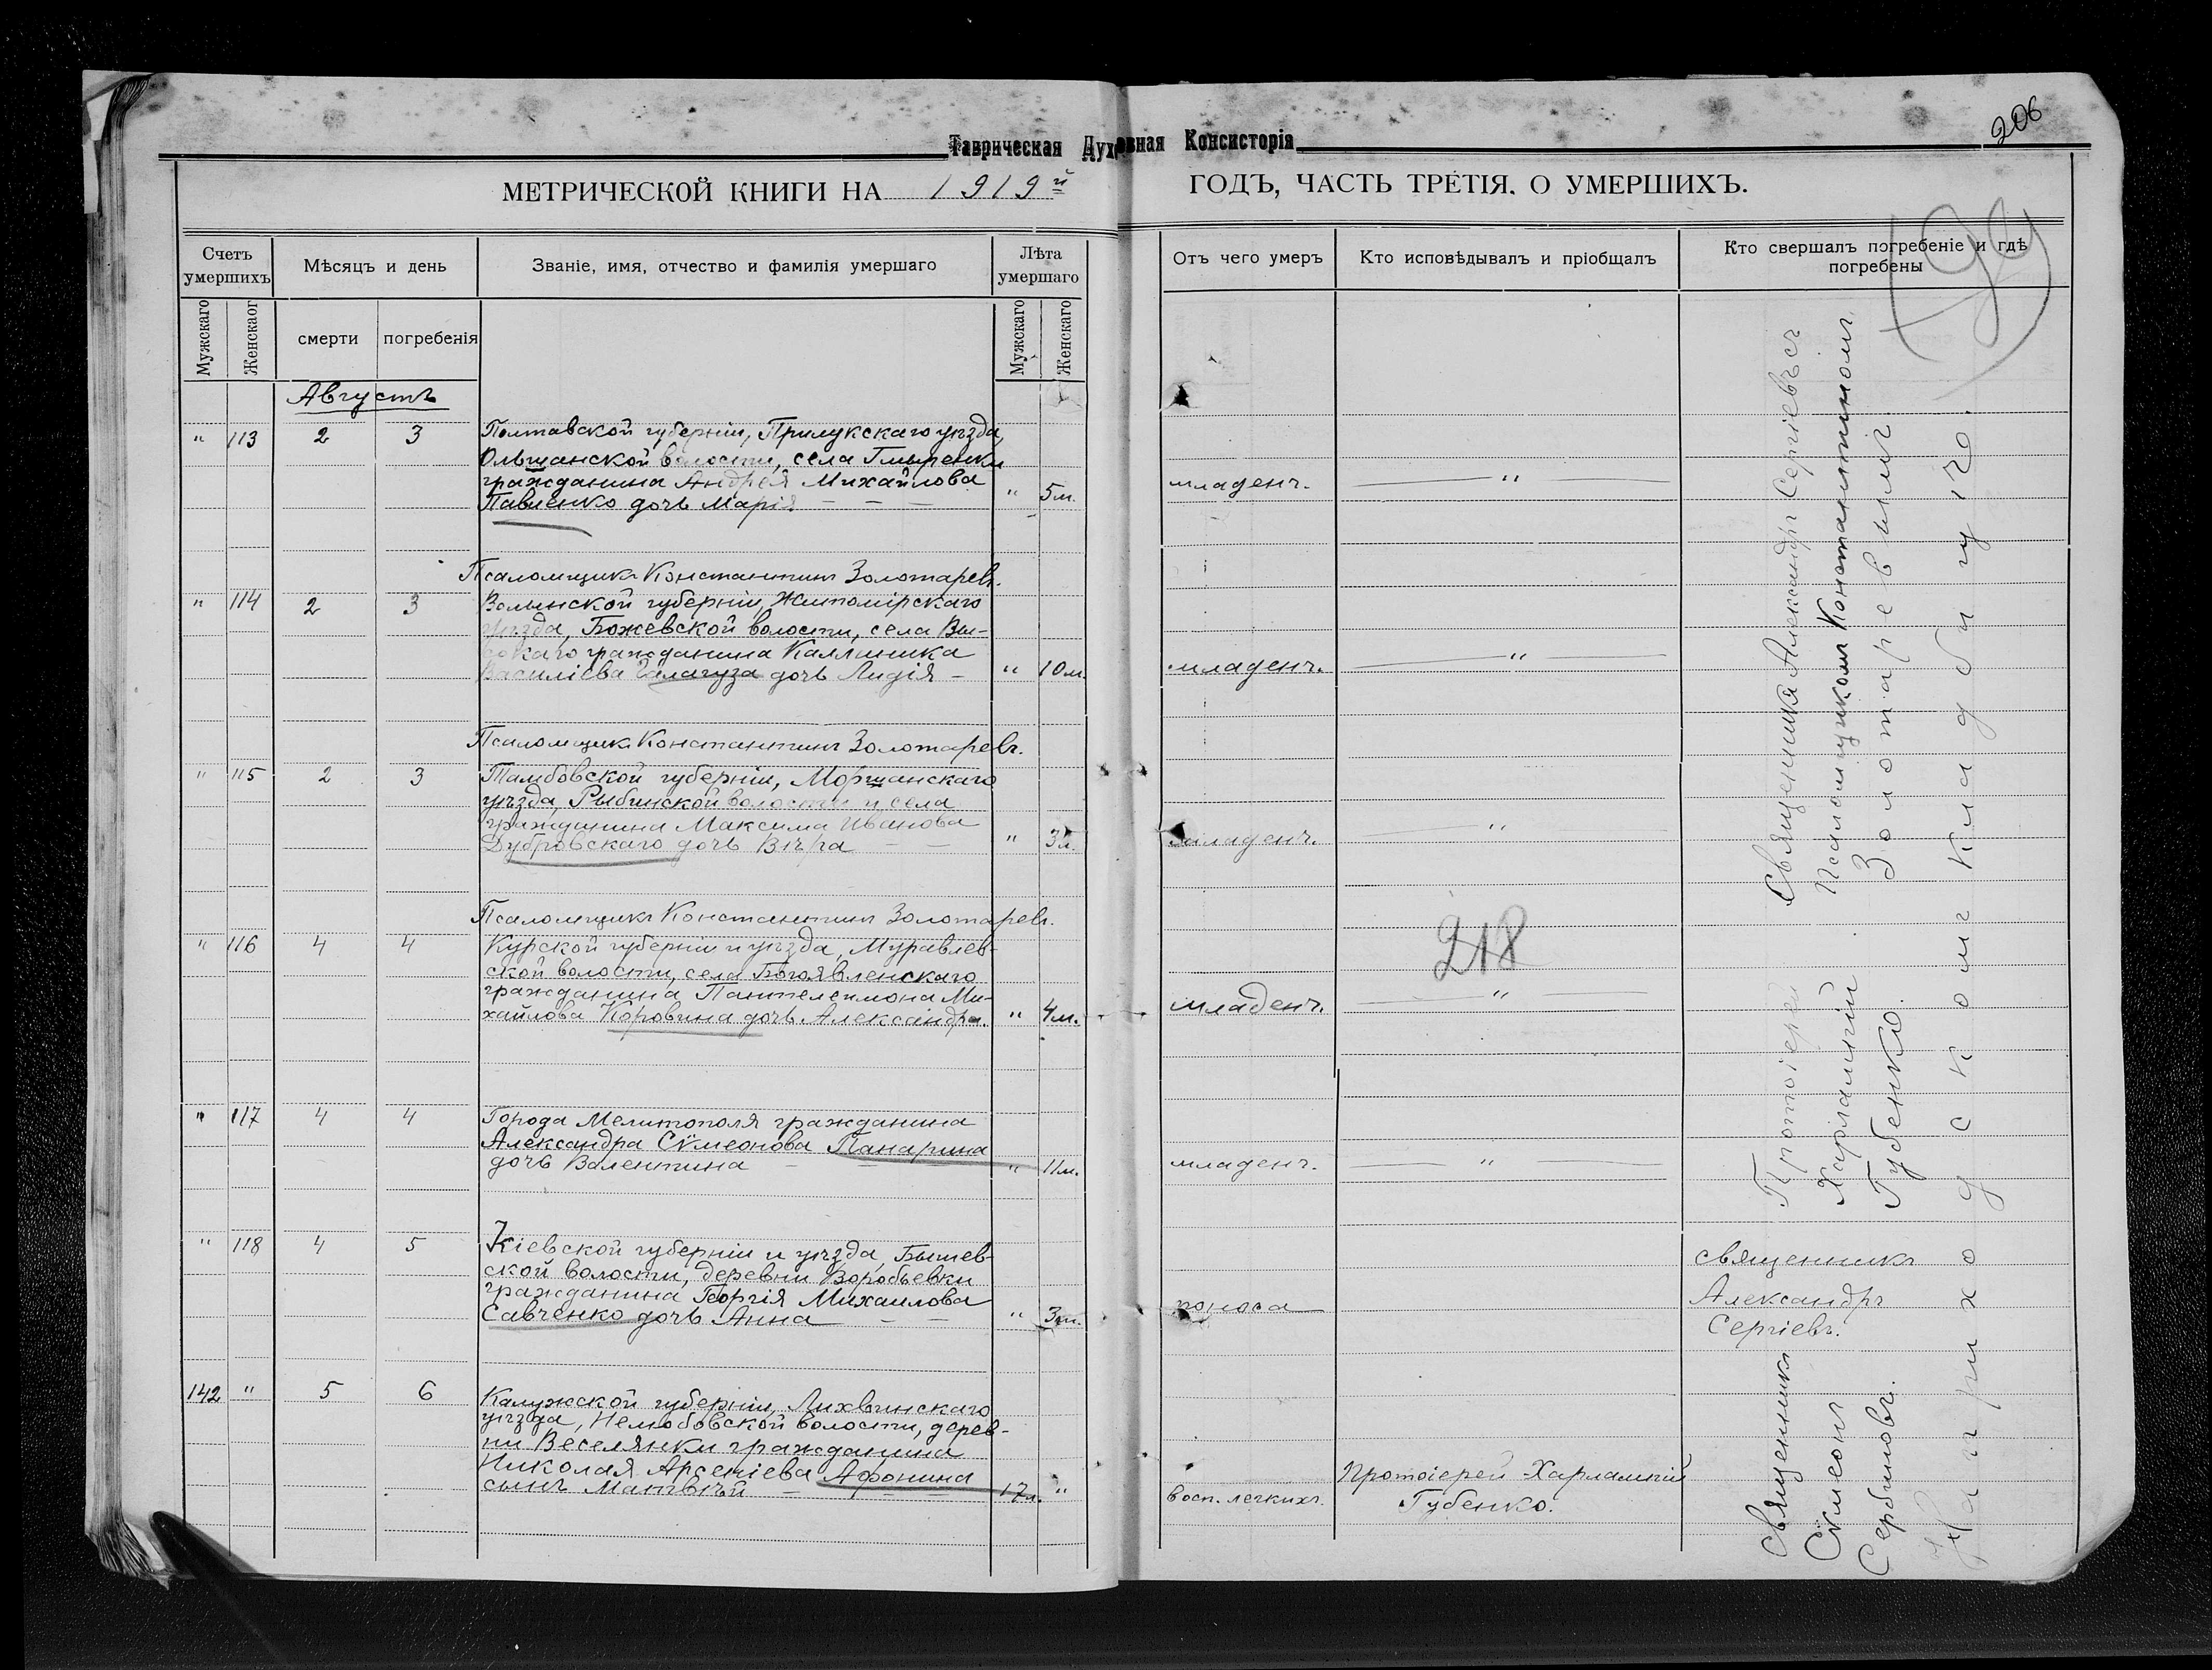 206
Таврическая Духовная Консисторія
МЕТРИЧЕСКОЙ КНИГИ НА 1919й ГОДЪ, ЧАСТЬ ТРЕТІЯ. О УМЕРШИХЪ.
Счетъ умершихъ
Мѣсяцъ и день
Званіе, имя, отчество и фамилія умершаго
Лѣта умершаго
Отъ чего умеръ
Кто исповѣдывалъ и пріобщалъ
Кто свершалъ погребеніе и гдѣ
погребены
Мужскаго
Женскаог
смерти
погребенія
Мужскаго
Женскаго
Августъ
" 113 2 3
Полтавской губерніи, Прилукскаго уѣзда,
Ольшанской волости, села Гмыренки
гражданина Андрея Михайлова
Павленко дочь Марія — — —
" 5 м.
младенч. "
Псаломщикъ Константинъ Золотаревъ.
" 114 2 3
Волынской губерніи, Житомірскаго
уѣзда, Божевской волости, села Вы-
сокаго гражданина Каллиника
Василіева Галагуза дочь Лидія —
" 10 м.
младенч. "
Псаломщикъ Константинъ Золотаревъ.
" 115 2 3
Тамбовской губерніи, Моршанскаго
уѣзда, Рыбинской волости и села
гражданина Максима Иванова
Дубровскаго дочь Вѣра — —
" 3 л.
младенч. "
Псаломщикъ Константинъ Золотаревъ.
" 116 4 4
Курской губерніи и уѣзда, Муравлев-
ской волости, села Богоявленскаго
гражданина Пантелеимона Ми-
хайлова Коровина дочь Александра.
" 4 м.
младенч. "
218
" 117 4 4
Города Мелитополя гражданина
Александра Сѵмеонова Панарина
дочь Валентина
" 11 м.
младенч. "
" 118 4 5
Кіевской губерніи и уѣзда, Бышев-
ской волости, деревни Воробьевки
гражданина Георгія Михаилова
Савченко дочь Анна — —
" 3 м.
поноса
священникъ
Александръ
Сергіевъ.
142 " 5 6
Калужской губерніи, Лихвинскаго
уѣзда, Нелюбовской волости, дерев-
ни Веселянки гражданина
Николая Арсеніева Афонина
сынъ Матвѣй
17 л. "
восп. легкихъ.
Протоіерей Харлампій
Губенко.
Священникъ Александръ Сергіевъ съ
Псаломщикомъ Константиномъ
Золотаревымъ
Протоіерей
Харлампій
Губенко.
Священникъ
Сѵмеонъ
Сербиновъ.
На приходскомъ кладбищѣ.